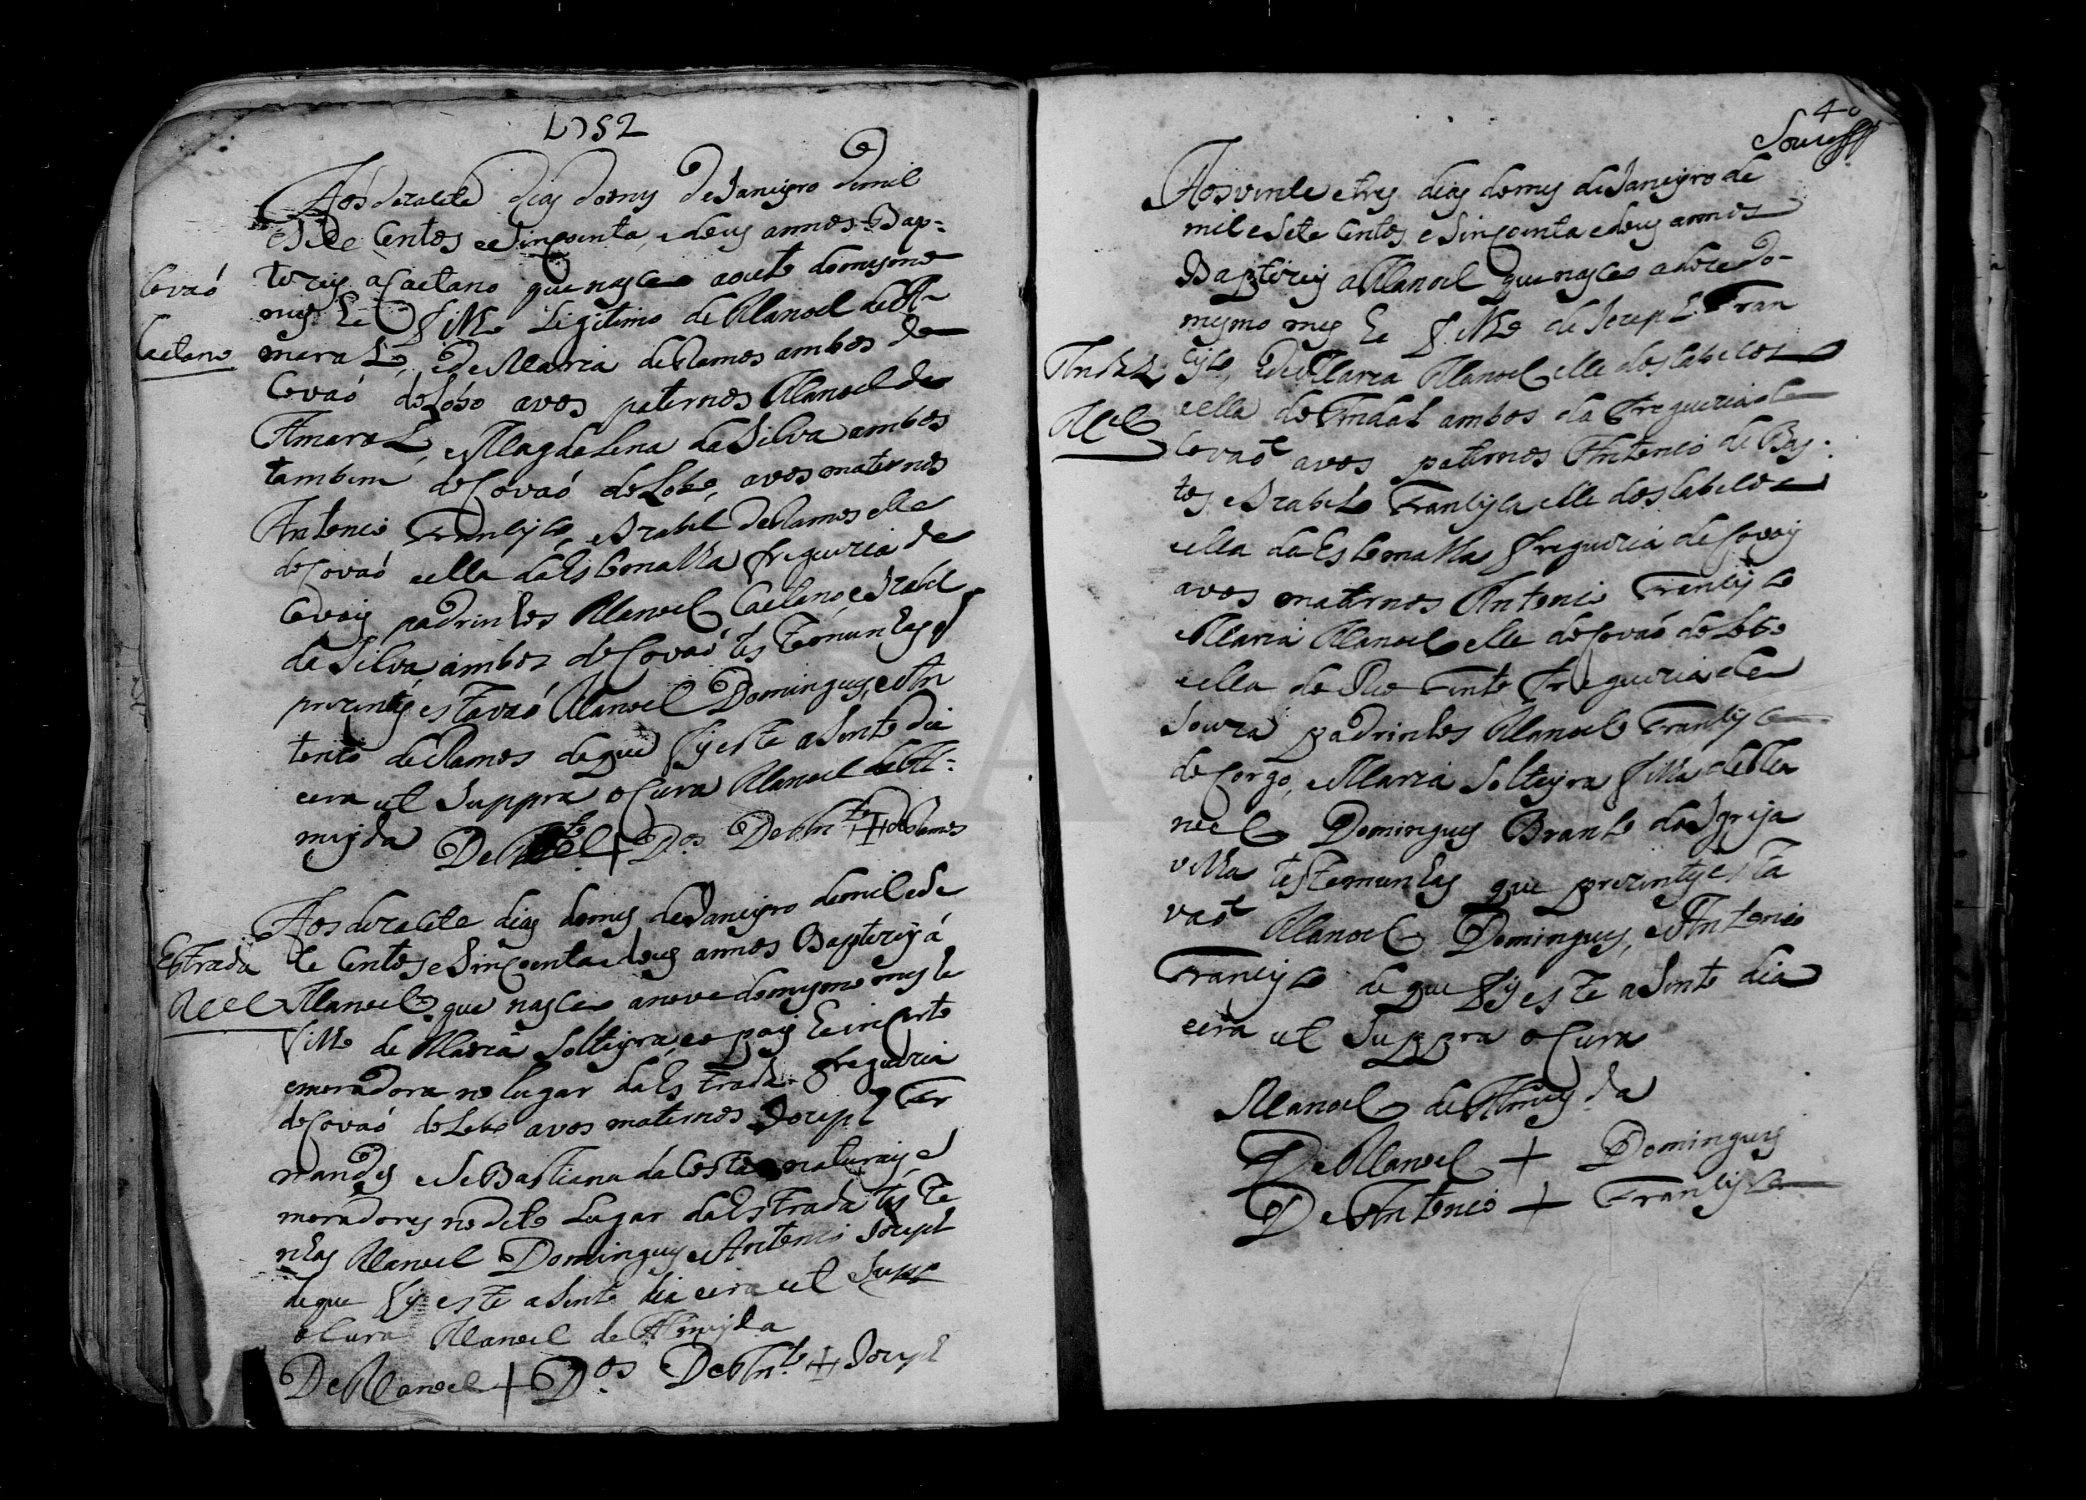 1752
Aos dezasete dias do mes de Janeyro de mil
e Sete Centos e Sincoenta e dous annos Bap-
tizey a Caetano que nasceo a outo do mesmo
mes he filho Legitimo de Manoel de A-
maral, e de Maria de Ramos ambos de
Covaó do Lobo avos paternos Manoel de
Amaral, e Magdalena da Silva ambos
tambem de Covaó do Lobo, avos maternos
Antonio Francisco, e Izabel de Ramos elle
de Covaó e ella da Esbomalha freguezia de
Covoy padrinhos Manoel Caetano e Izabel
da Silva ambos de Covaó testemunhas q
prezentes estavaó Manoel Domingues, e An
tonio de Ramos de que fis este asento dia
e era ut Suppra o Cura Manoel de Al-
meyda De Mel + Dos De Anto + de Ramos
Covaó
Caetano
Aos dezasete dias do mes de Janeyro de mil e Se
te Centos e Sincoenta e dous annos Baptizey á
Manoel que nasceo a nove do mesmo mes he
filho de Maria Solteyra, e o pay he incerto
e moradora no lugar da Estrada freguezia
de Covaó do Lobo avos maternos Joseph Fer
nandes e Sebastiana da Costa naturays e
moradores no dito Lugar da Estrada teste
nhas Manoel Domingues e Antonio Joseph
de que fis este asento dia e era ut Supp
o Cura Manoel de Almeyda
De Manoel + Dos De Anto + Joseph
Estrada
Mel
40
Aos vinte e tres dias do mes de Janeyro de
mil e Sete Centos e Sincoenta e dous annos
Baptizey a Manoel que nasceo a doze do
mesmo mes he filho de Joseph Fran
cisco, e de Maria Manoel elle dos Cabecos
e ella do Andal ambos da freguezia de
Covaó avos paternos Antonio de Bas-
tos e Izabel Francisca elle dos Cabecos
e ella da Esbomalha freguezia de Covoy
avos maternos Antonio Francisco
e Maria Manoel elle de Covaó do Lobo
e ella de Rio Tinto freguezia de
Souza padrinhos Manoel Francisco
de Corgo, e Maria Solteyra filha de Ma
noel Domingues Branco da Igreja
velha testemunhas que prezentes esta
vaó Manoel Domingues, e Antonio
Francisco de que fis este asento dia
e era ut Suppra o Cura
Manoel de Almeyda
De Manoel + Domingues
De Antonio + Francisco
Andal
Mel